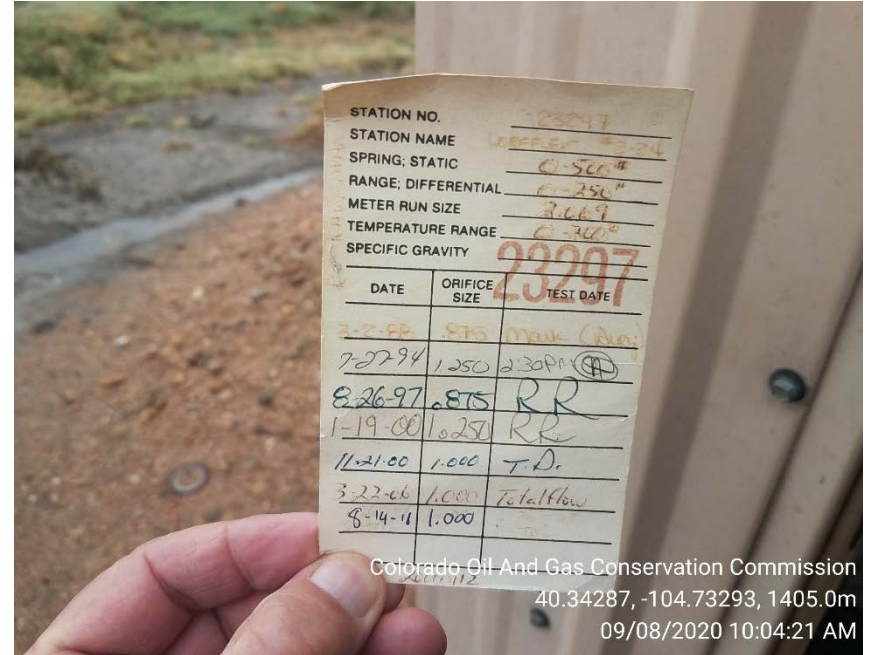 STATION NO. 23297
STATION NAME LOEFFLER #2-24
SPRING; STATIC 0-500#
RANGE; DIFFERENTIAL 0-250"
METER RUN SIZE
TEMPERATURE RANGE
SPECIFIC GRAVITY
23297
DATE ORIFICE SIZE TEST DATE
3-2-88 .875 Mark
7-27-94 1,250 2:30PM
8-26-97 .875 RR
1-19-00 1.250 RR
11-21-00 1.000 T.D.
3-22-06 1.000 Totalflow
8-14-11 1.000
Colorado Oil And Gas Conservation Commission
40.34287, -104.73293, 1405.0m
09/08/2020 10:04:21 AM